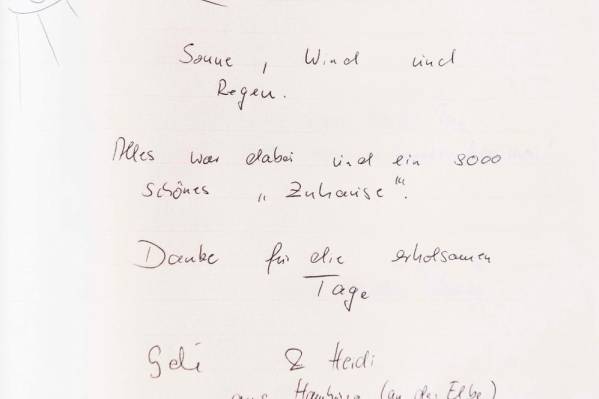 Sonne , Wind und
Regen.
Alles war dabei und ein sooo
schönes „ Zuhause ".
Danke für die erholsamen
Tage
Geli & Heidi
aus Hamburg (an der Elbe)